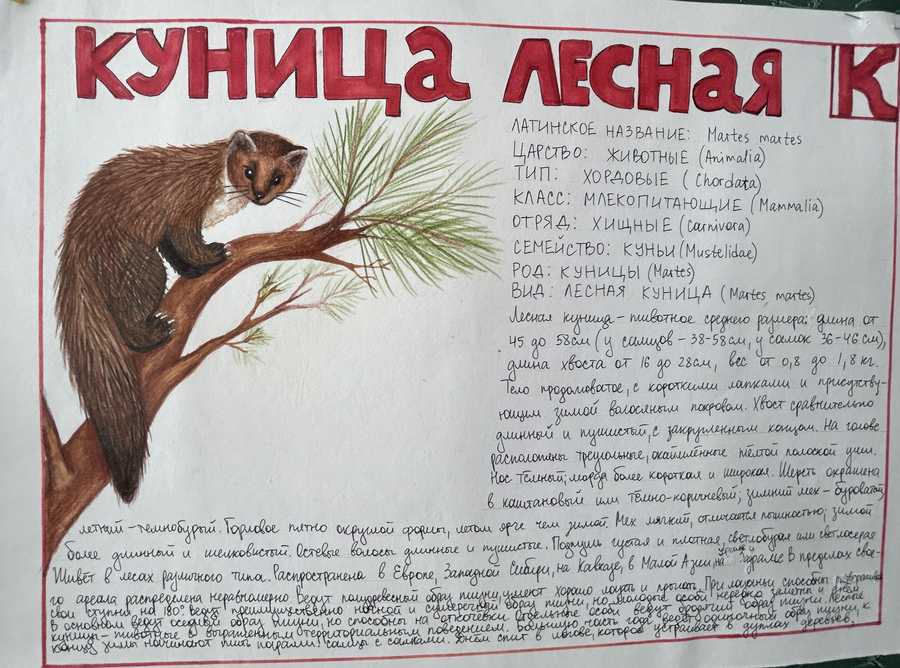 КУНИЦА ЛЕСНАЯ К
ЛАТИНСКОЕ НАЗВАНИЕ: Martes martes
ЦАРСТВО: ЖИВОТНЫЕ (Animalia)
ТИП: ХОРДОВЫЕ (Chordata)
КЛАСС: МЛЕКОПИТАЮЩИЕ (Mammalia)
ОТРЯД: ХИЩНЫЕ (Carnivora)
СЕМЕЙСТВО: КУНЬИ (Mustelidae)
РОД: КУНИЦЫ (Martes)
ВИД: ЛЕСНАЯ КУНИЦА (Martes martes)
Лесная куница - животное среднего размера: длина от
45 до 58см (у самцов - 38-58см, у самок 36-46 см),
длина хвоста от 16 до 28см, вес от 0,8 до 1,8 кг.
Тело продолговатое, с короткими лапками и присутству-
ющим зимой волосяным покровом. Хвост сравнительно
длинный и пушистый, с закругленным концом. На голове
расположены треугольные, окаймлённые жёлтой полоской уши.
Нос тёмный; морда более короткая и широкая. Шерсть окрашена
в каштановый или тёмно-коричневый; зимний мех - буроватый,
летний - темнобурый. Горловое пятно округлой формы, летом ярче чем зимой. Мех мягкий, отличается пышностью; зимой
более длинный и шелковистый. Остевые волосы длинные и пушистые. Подпушь густая и плотная, светлобурая или светлосерая
Живёт в лесах различного типа. Распространена в Европе, Западной Сибири, на Кавказе, в Малой Азии, на В пределах свое-
го ареала распределена неравномерно. Ведут полудревесный образ жизни, умеют хорошо лазать и прыгать. При лазаньи способны
свои ступни на 180° Ведут преимущественно ночной и сумеречный образ жизни, но молодые особи нередко заметны и днём
в основном ведут оседлый образ жизни, но способны на откочёвки. Отдельные особи ведут бродячий образ жизни. Лесные
куницы - животные с выраженным территориальным поведением. Большую часть года ведут одиночный образ жизни, к
концу зимы начинают жить парами: самцы с самками. Днём спит в логове, которое устраивает в дуплах деревьев.